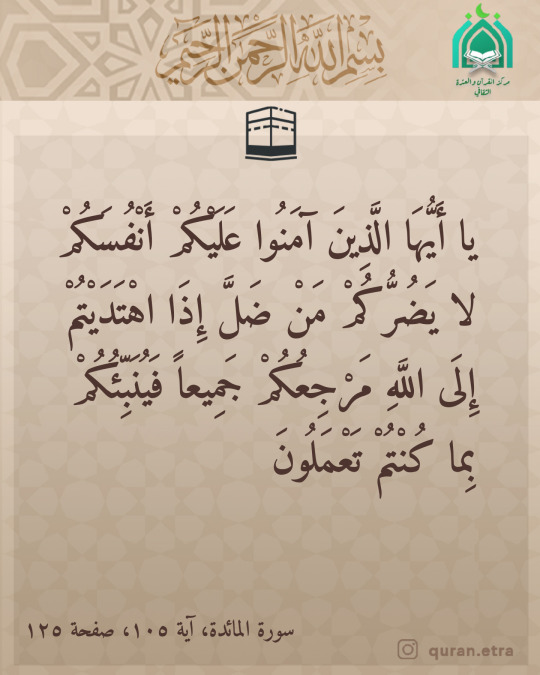 بسم الله الرحمن الرحيم
مركز القرآن والعترة
الثقافي
يا أَيُّهَا الَّذِينَ آمَنُوا عَلَيْكُمْ أَنْفُسَكُمْ
لا يَضُرُّكُمْ مَنْ ضَلَّ إِذَا اهْتَدَيْتُمْ
إِلَى اللَّهِ مَرْجِعُكُمْ جَمِيعاً فَيُنَبِّئُكُمْ
بِما كُنْتُمْ تَعْمَلُونَ
سورة المائدة، آية ١٠٥، صفحة ١٢٥
quran.etra